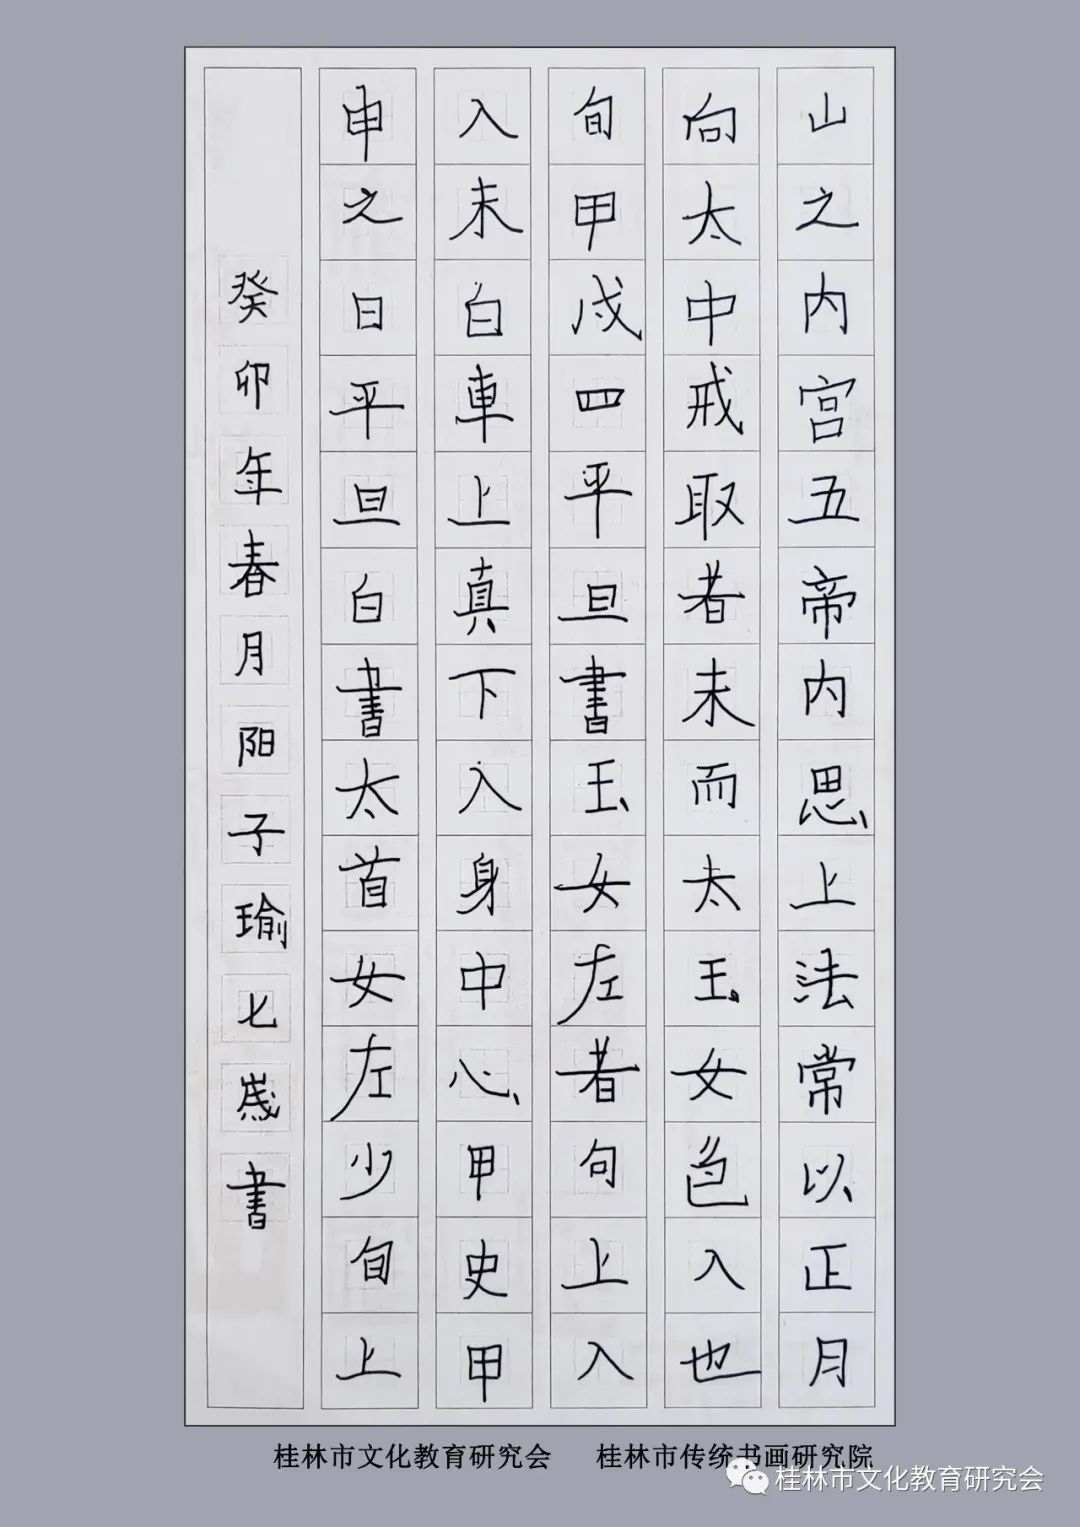 山之内宫五帝内思上法常以正月
向太中戒取者未而太玉女色入也
旬甲戌四平旦書玉女左者句上入
入未白車上真下入身中心甲史甲
申之日平旦白書太首女左少旬上
癸卯年春月阳子瑜七岁書
桂林市文化教育研究会 桂林市传统书画研究院
桂林市文化教育研究会